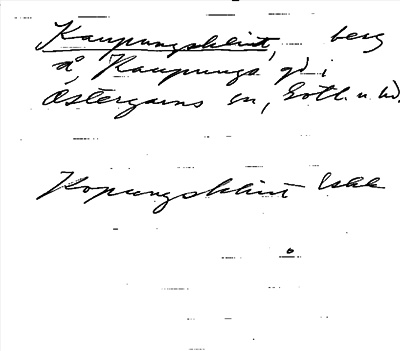 Kaupungsklint, berg
å Kaupungs gd i
Östergarns sn, Gotl.
Kopungsklint